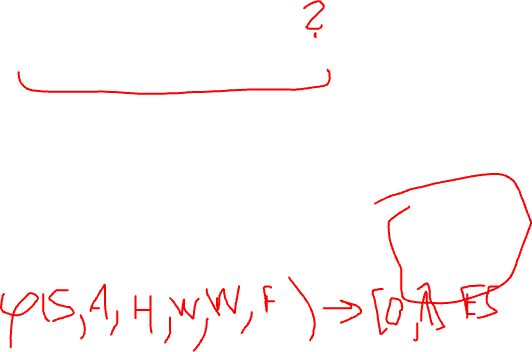 ?
φ(S, A, H, W, W, F) → [0, 1] ES